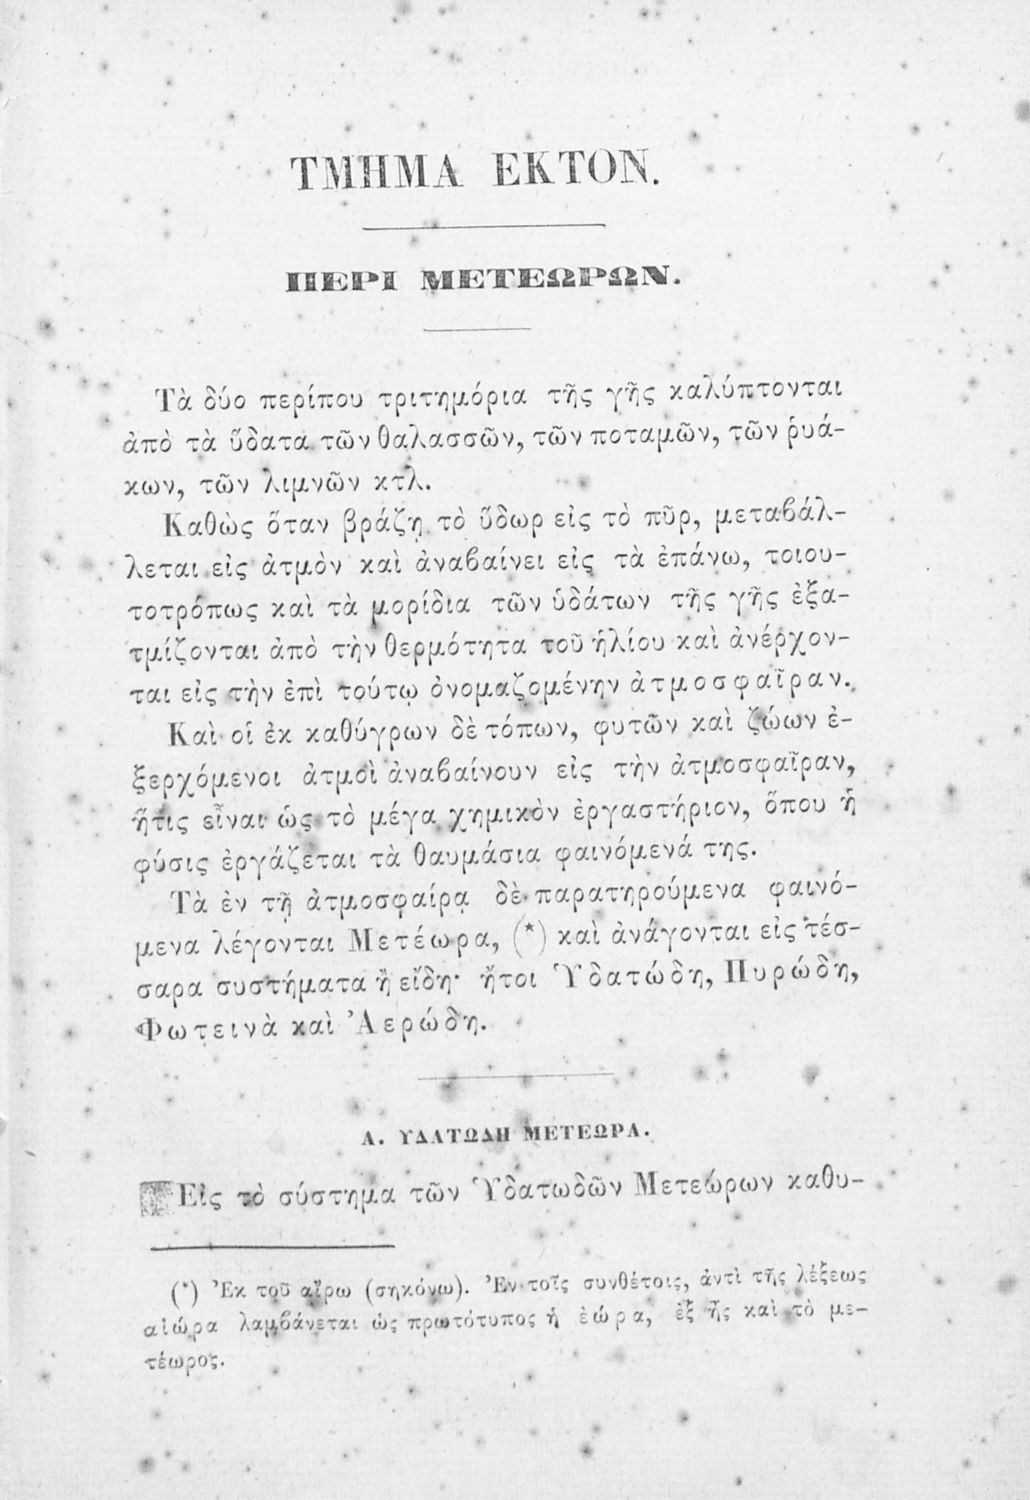 ΤΜΗΜΑ ΕΚΤΟΝ.
ΠΕΡΙ ΜΕΤΕΩΡΩΝ.
Τὰ δύο περίπου τριτημόρια τῆς γῆς καλύπτονται
ἀπὸ τὰ ὕδατα τῶν θαλασσῶν, τῶν ποταμῶν, τῶν ῥυά-
κων, τῶν λιμνῶν κτλ.
Καθὼς ὅταν βράζῃ τὸ ὕδωρ εἰς τὸ πῦρ, μεταβάλ-
λεται εἰς ἀτμὸν καὶ ἀναβαίνει εἰς τὰ ἐπάνω, τοιου-
τοτρόπως καὶ τὰ μορίδια τῶν ὑδάτων τῆς γῆς ἐξα-
τμίζονται ἀπὸ τὴν θερμότητα τοῦ ἡλίου καὶ ἀνέρχον-
ται εἰς τὴν ἐπὶ τούτῳ ὀνομαζομένην ἀτμοσφαῖραν.
Καὶ οἱ ἐκ καθύγρων δὲ τόπων, φυτῶν καὶ ζώων ἐ-
ξερχόμενοι ἀτμοὶ ἀναβαίνουν εἰς τὴν ἀτμοσφαῖραν,
ἥτις εἶναι ὡς τὸ μέγα χημικὸν ἐργαστήριον, ὅπου ἡ
φύσις ἐργάζεται τὰ θαυμάσια φαινόμενά της.
Τὰ ἐν τῇ ἀτμοσφαίρᾳ δὲ παρατηρούμενα φαινό-
μενα λέγονται Μετέωρα, (*) καὶ ἀνάγονται εἰς τέσ-
σαρα συστήματα ἢ εἴδη· ἤτοι Ὑδατώδη, Πυρώδη,
Φωτεινὰ καὶ Ἀερώδη.
Α. ΥΔΑΤΩΔΗ ΜΕΤΕΩΡΑ.
Εἰς τὸ σύστημα τῶν Ὑδατωδῶν Μετεώρων καθυ-
(*) Ἐκ τοῦ αἴρω (σηκόνω). Ἐν τοῖς συνθέτοις, ἀντὶ τῆς λέξεως
αἰώρα λαμβάνεται ὡς πρωτότυπος ἡ ἐώρα, ἐξ ἧς καὶ τὸ με-
τέωρος.